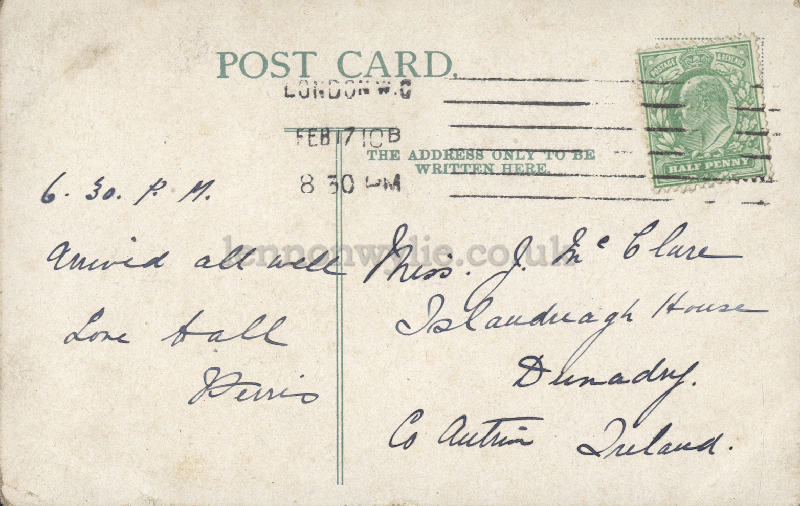 POST CARD.
LONDON W.C
FEB 17 10 B
8 30 PM
POSTAGE & REVENUE
HALF PENNY
THE ADDRESS ONLY TO BE
WRITTEN HERE.
6.30. P.M.
Arrived all well
Love to all
lennonwylie.co.uk
Miss. J. McClure
Islandreagh House
Dunadry.
Co Antrim Ireland.